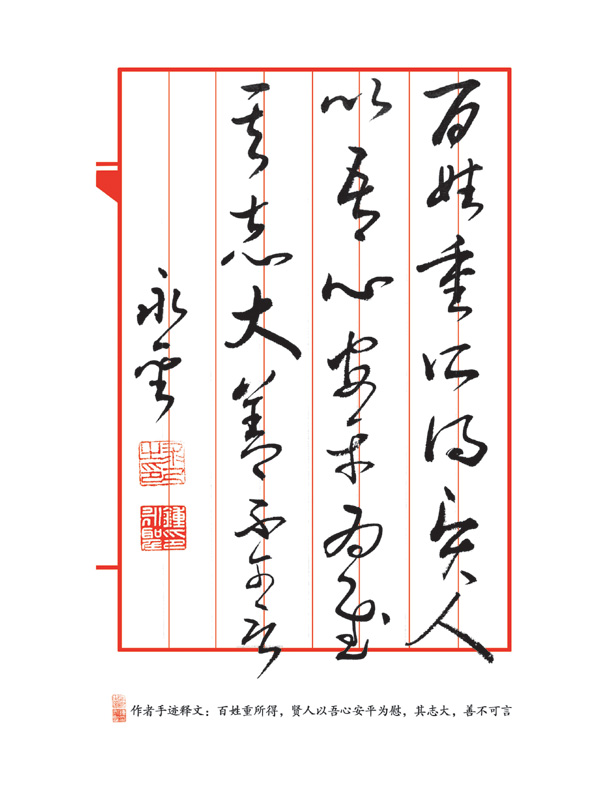 百姓重所得贤人
以吾心安平为慰
其志大善不可言
永雲
作者手迹释文：百姓重所得，賢人以吾心安平为慰，其志大，善不可言